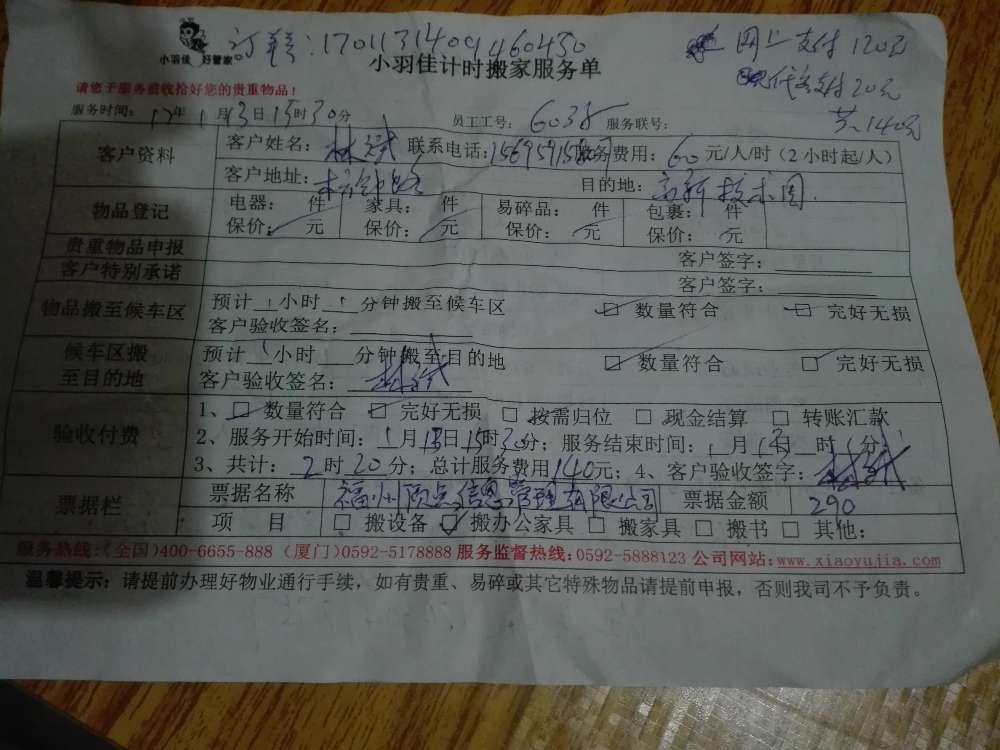 小羽佳 好管家
订单号：1701131409460450
网上支付120元
现金支付20元
共140元
小羽佳计时搬家服务单
请您于服务前收拾好您的贵重物品！
服务时间：17年1月13日15时30分 员工工号：6038 服务联号：
客户资料 客户姓名：林斌 联系电话： 服务费用：60元/人/时（2小时起/人）
客户地址： 目的地：高新技术园
物品登记 电器： 件 家具： 件 易碎品： 件 包裹： 件
保价： 元 保价： 元 保价： 元 保价： 元
贵重物品申报 客户签字：
客户特别承诺 客户签字：
物品搬至候车区 预计1小时 分钟搬至候车区 数量符合 完好无损
客户验收签名：
候车区搬至目的地 预计1小时 分钟搬至目的地 数量符合 完好无损
客户验收签名：林斌
验收付费 1、 数量符合 完好无损 按需归位 现金结算 转账汇款
2、服务开始时间：1月13日15时30分；服务结束时间：1月13日 时 分；
3、共计：2时20分；总计服务费用140元；4、客户验收签字：林斌
票据栏 票据名称 福州顶点信息管理有限公司 票据金额 290
项 目 搬设备 搬办公家具 搬家具 搬书 其他：
服务热线：(全国)400-6655-888 (厦门)0592-5178888 服务监督热线：0592-5888123 公司网站：www.xiaoyujia.com
温馨提示：请提前办理好物业通行手续，如有贵重、易碎或其它特殊物品请提前申报，否则我司不予负责。